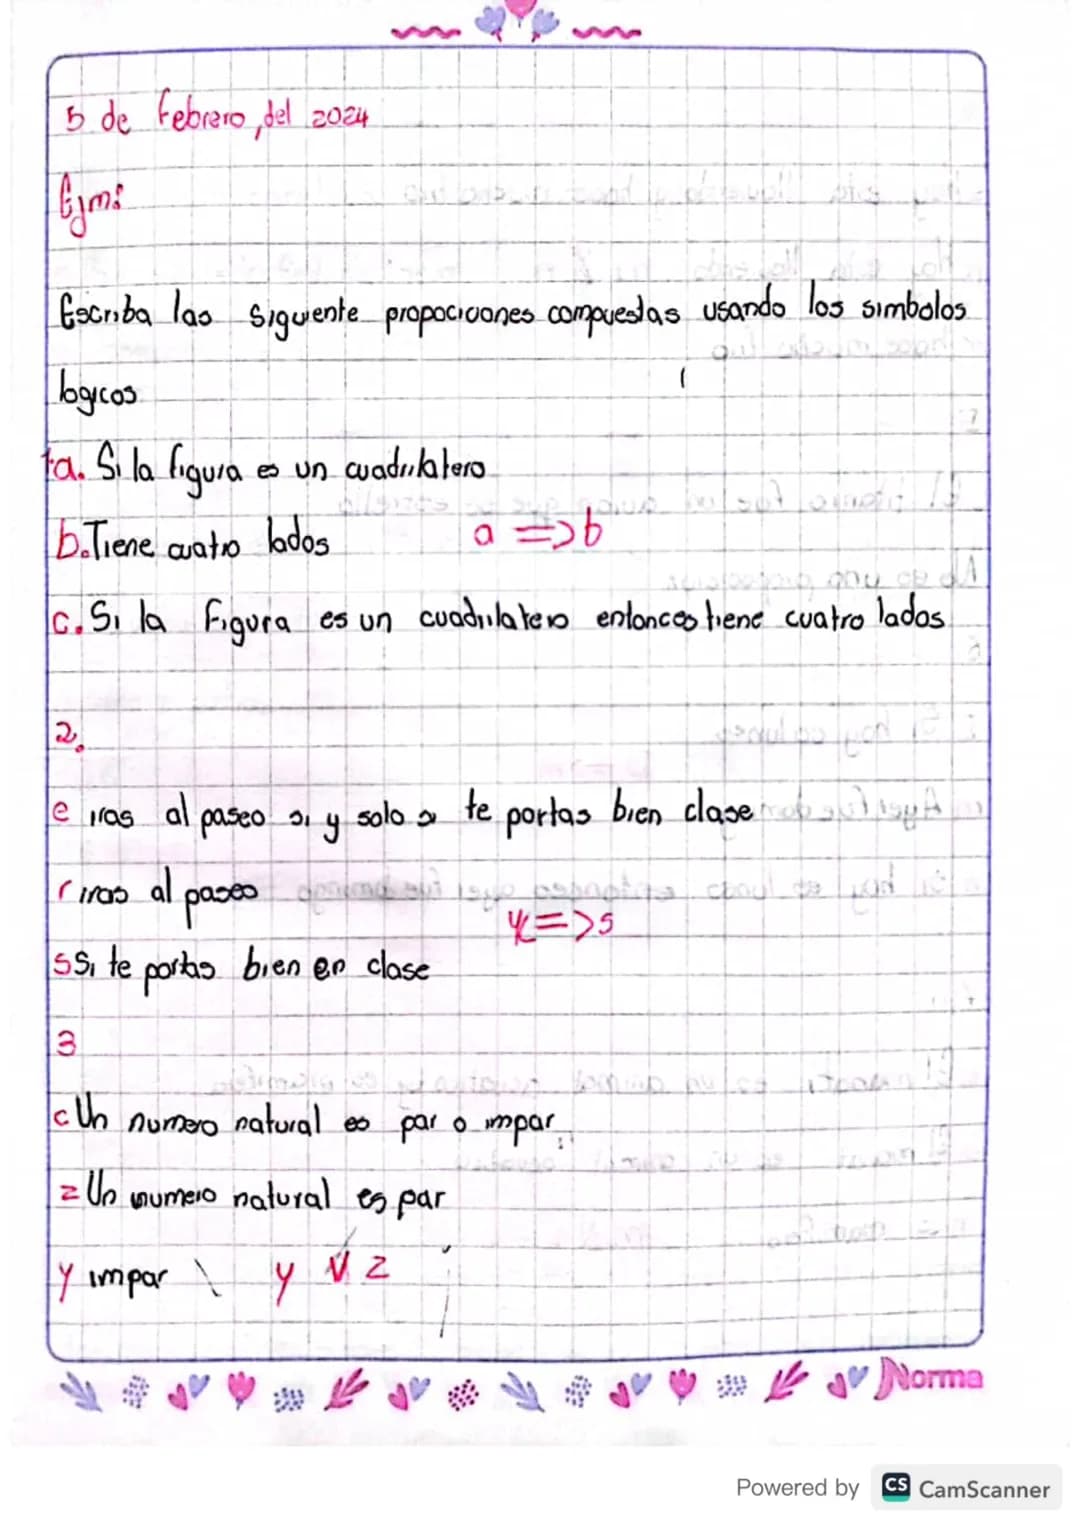 5 de febrero, del 2024
Ejm:
Escriba las siguiente proposiciones compuestas usando los simbolos
logicos
1a. Si la figura es un cuadrilatero
b. Tiene cuatro lados a => b
c. Si la figura es un cuadrilatero entonces tiene cuatro lados
2.
e iras al paseo si y solo si te portas bien clase
r iras al paseo
r => s
s Si te portas bien en clase
3
c Un numero natural es par o impar
z Un numero natural es par
y impar y V z
Norma
Powered by CS CamScanner